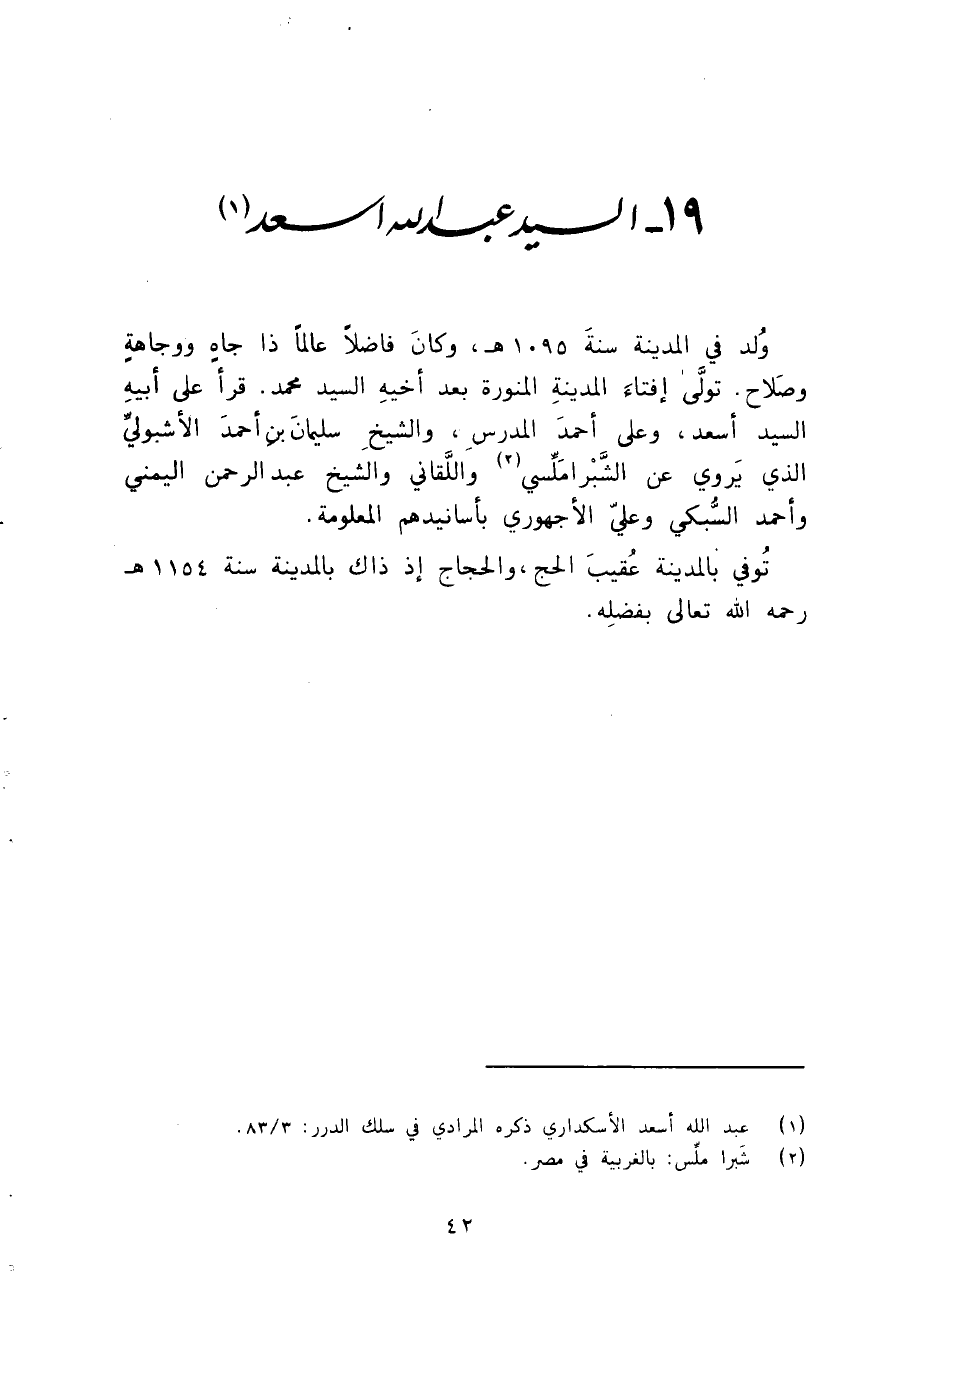 ١٩ـ السيد عبد الله اسعد (١)
وُلد في المدينة سنةَ ١٠٩٥ هـ، وكانَ فاضلاً عالماً ذا جاهٍ ووجاهةٍ
وصَلاح. تولَّى إفتاءَ المدينةِ المنورة بعد أخيهِ السيد محمد. قرأ على أبيهِ
السيد أسعد، وعلى أحمدَ المدرسِ، والشيخِ سليمانَ بنِ أحمدَ الأشبوليِّ
الذي يَروي عن الشَّبْراملّسي(٢) واللَّقاني والشيخ عبد الرحمن اليمني
وأحمد السُّبكي وعليّ الأجهوري بأسانيدهم المعلومة.
تُوفي بالمدينة عُقيبَ الحج، والحجاج إذ ذاك بالمدينة سنة ١١٥٤ هـ
رحمه الله تعالى بفضلِه.
(١) عبد الله أسعد الأسكداري ذكره المرادي في سلك الدرر: ٨٣/٣.
(٢) شَبرا ملّس: بالغربية في مصر.
٤٢